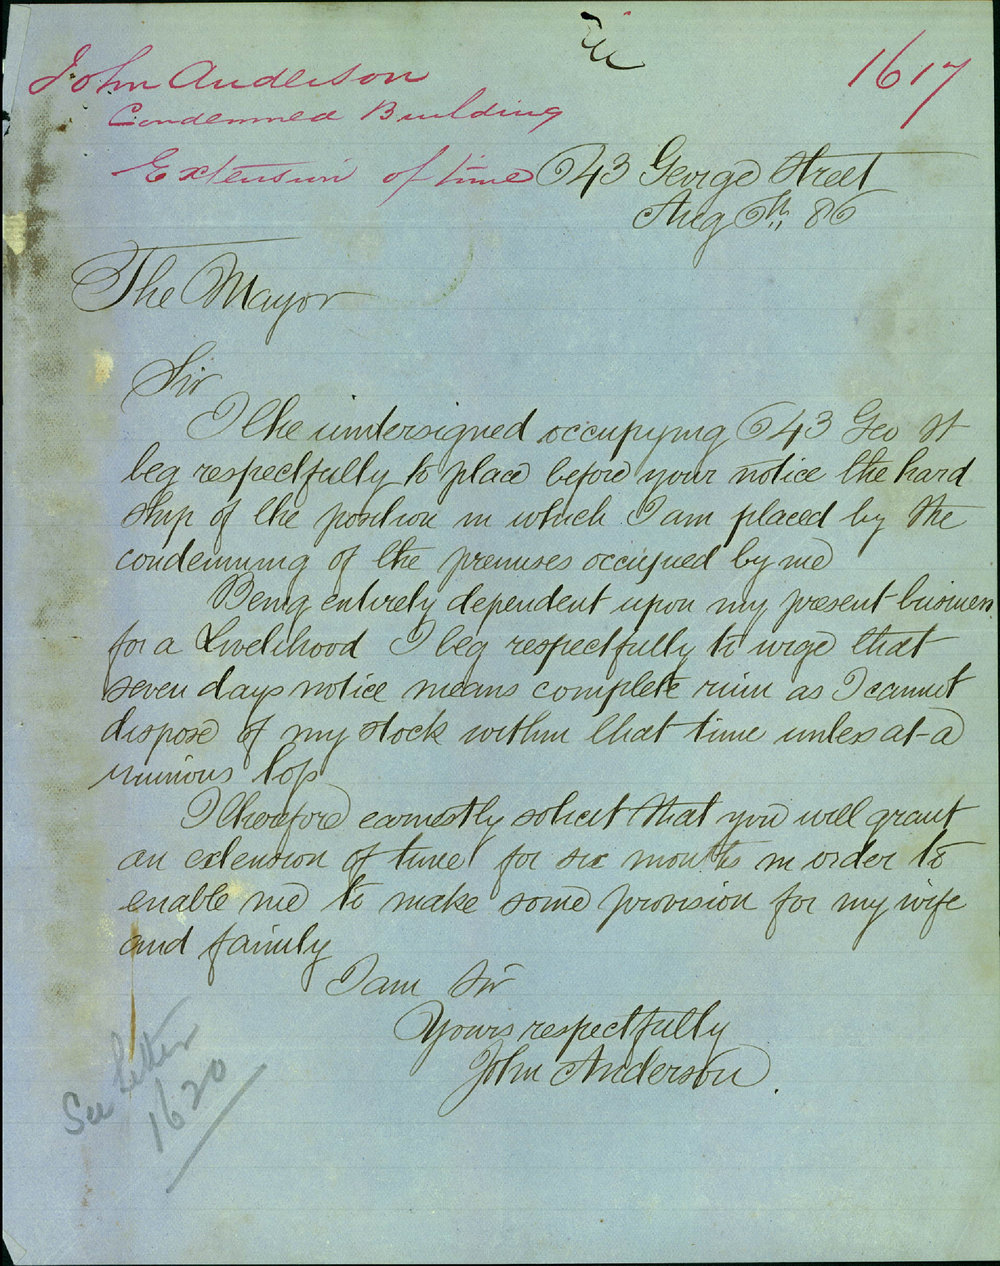 John Anderson
1617
Condemned Building
Extension of time
643 George Street
Aug 6th 86
The Mayor
Sir
I the undersigned occupying 643 Geo St
beg respectfully to place before your notice the hard
ship of the position in which I am placed by the
condemning of the premises occupied by me
Being entirely dependent upon my present business
for a Livelihood I beg respectfully to urge that
seven days notice means complete ruin as I cannot
dispose of my stock within that time unless at a
ruinous loss
I therefore earnestly solicit that you will grant
an extension of time for six months in order to
enable me to make some provision for my wife
and family
I am Sir
Yours respectfully
John Anderson
See Letter
1620